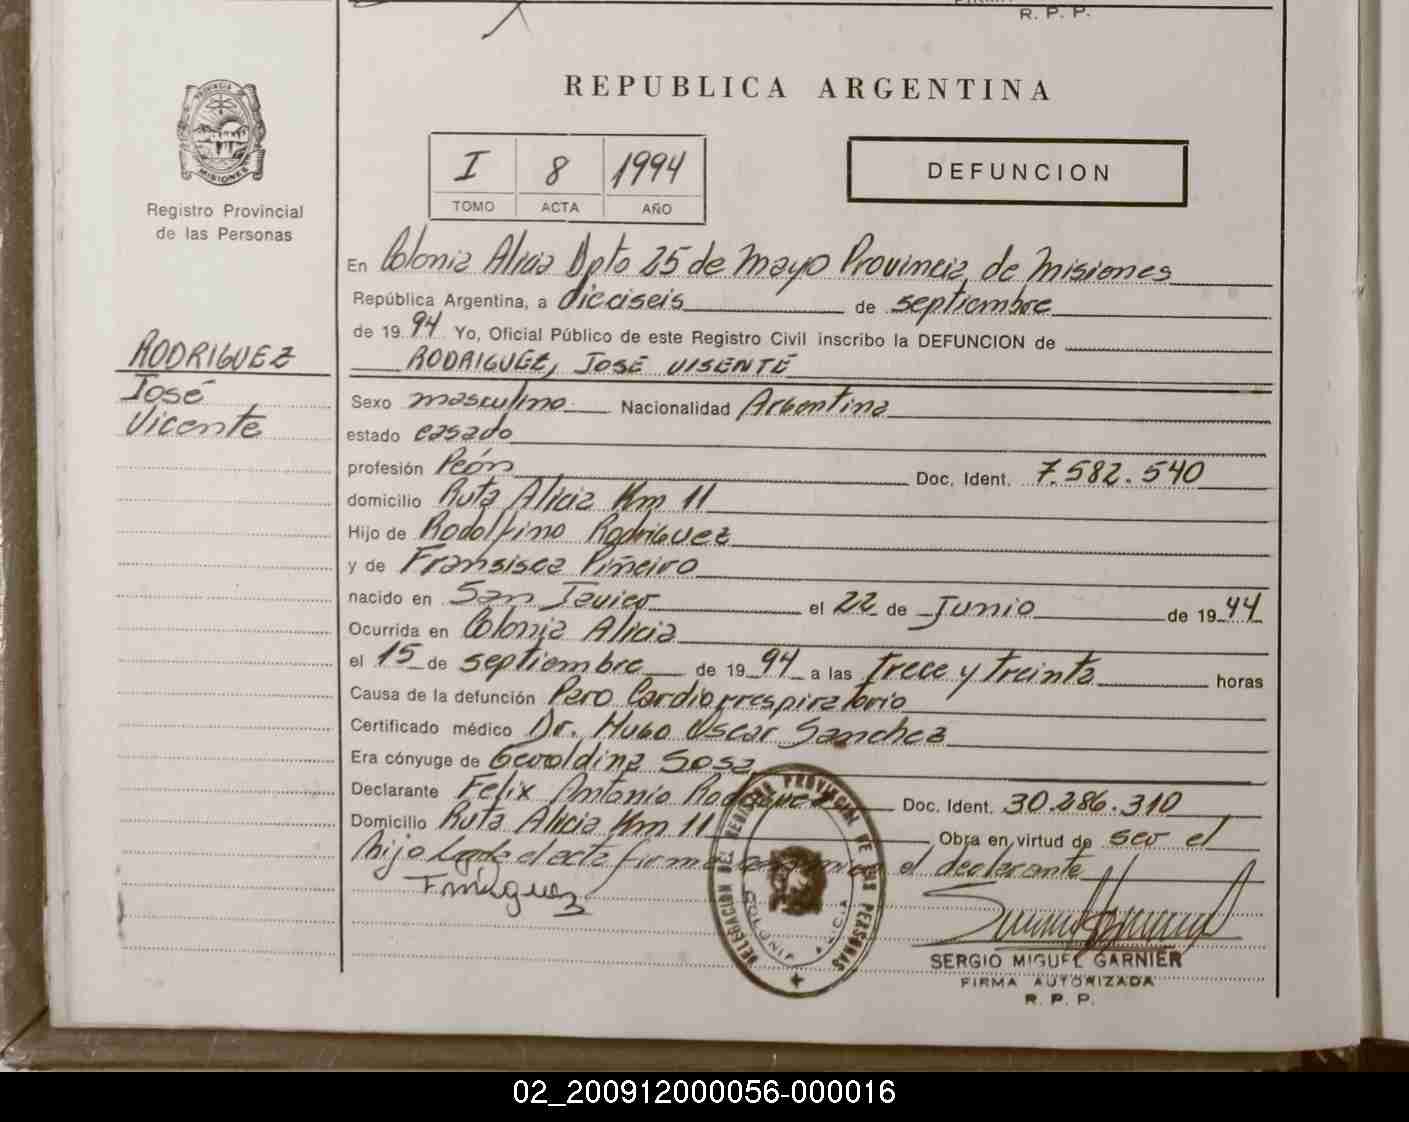 R. P. P.
REPUBLICA ARGENTINA
PROVINCIA DE
MISIONES
Registro Provincial
de las Personas
I 8 1994
TOMO ACTA AÑO
DEFUNCION
En Colonia Alicia Dpto 25 de Mayo Provincia de Misiones
República Argentina, a dieciseis de septiembre
de 1994 Yo, Oficial Público de este Registro Civil inscribo la DEFUNCION de
RODRIGUEZ, JOSÉ VISENTE
RODRIGUEZ
José
Vicente
Sexo masculino Nacionalidad Argentina
estado casado
profesión Peón Doc. Ident. 7.582.540
domicilio Ruta Alicia Km 11
Hijo de Rodolfino Rodriguez
y de Fransisca Piñeiro
nacido en San Javier el 22 de Junio de 1944
Ocurrida en Colonia Alicia
el 15 de septiembre de 1994 a las trece y treinta horas
Causa de la defunción Paro Cardiorrespiratorio
Certificado médico Dr. Hugo Oscar Sanchez
Era cónyuge de Geraldina Sosa
Declarante Felix Antonio Rodriguez Doc. Ident. 30.286.310
Domicilio Ruta Alicia Km 11 Obra en virtud de ser el
hijo el acta firma el declarante
DELEGACION DEL REGISTRO PROVINCIAL DE LAS PERSONAS
COLONIA ALICIA
SERGIO MIGUEL GARNIER
FIRMA AUTORIZADA
R. P. P.
02_200912000056-000016